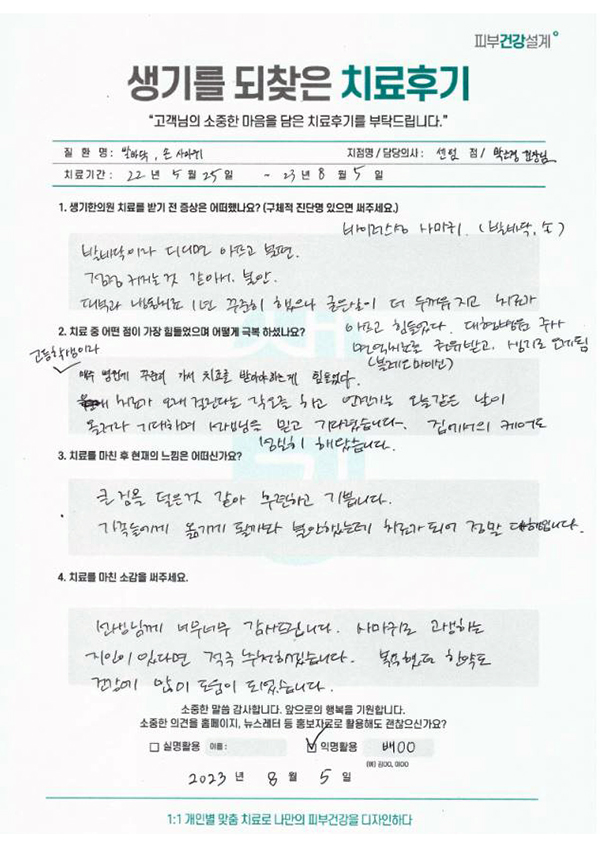 피부건강설계
생기를 되찾은 치료후기
"고객님의 소중한 마음을 담은 치료후기를 부탁드립니다."
질 환 명 : 발바닥, 손 사마귀 지점명 / 담당의사 : 센텀 점 / 원장님
치료기간 : 22 년 5 월 25 일 ~ 23 년 8 월 5 일
1. 생기한의원 치료를 받기 전 증상은 어떠했나요? (구체적 진단명 있으면 써주세요.)
바이러스성 사마귀. (발바닥, 손)
발바닥이라 디디면 아프고 불편.
점점 커지는것 같아서 불안.
냉동치료 1년 꾸준히 했으나 굳은살이 더 두꺼워지고 치료가
아프고 힘들었다. 대학병원 주사
면역치료로 권유받고, 생기로 오게됨
(블레오마이신)
2. 치료 중 어떤 점이 가장 힘들었으며 어떻게 극복 하셨나요?
고등학생이라
매주 병원에 꾸준히 가서 치료를 받아야하는게 힘들었다.
치료가 오래 걸린다는 각오를 하고 언젠가는 오늘같은 날이
올거라 기대하며 원장님을 믿고 기다렸습니다. 집에서의 케어도
열심히 해왔습니다.
3. 치료를 마친 후 현재의 느낌은 어떠신가요?
큰 짐을 덜은것 같아 후련하고 기쁩니다.
가족들에게 옮기게 될까봐 불안했는데 치료가 되어 정말 다행입니다.
4. 치료를 마친 소감을 써주세요.
선생님께 너무너무 감사드립니다. 사마귀로 고생하는
지인이 있다면 적극 추천하겠습니다. 복용했던 한약도
건강에 많이 도움이 되었습니다.
소중한 말씀 감사합니다. 앞으로의 행복을 기원합니다.
소중한 의견을 홈페이지, 뉴스레터 등 홍보자료로 활용해도 괜찮으신가요?
실명활용 이름 : 익명활용 배OO
(예) 김OO, 이OO
2023 년 8 월 5 일
1:1 개인별 맞춤 치료로 나만의 피부건강을 디자인하다